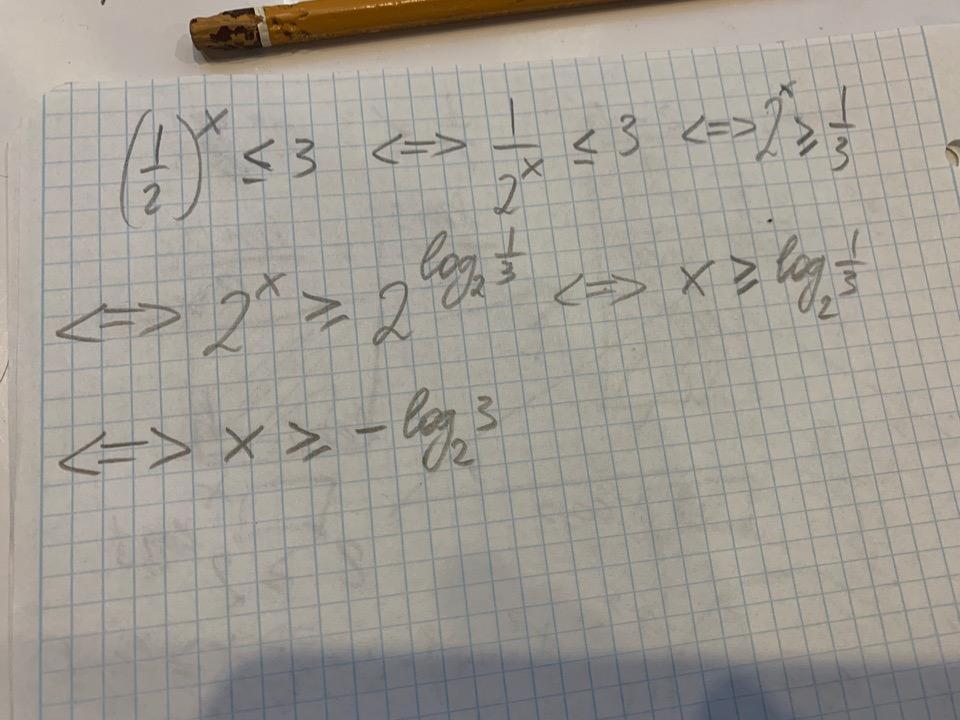 (1/2)^x ≤ 3 <=> 1/2^x ≤ 3 <=> 2^x ≥ 1/3
<=> 2^x ≥ 2^(log_2 1/3) <=> x ≥ log_2 1/3
<=> x ≥ - log_2 3